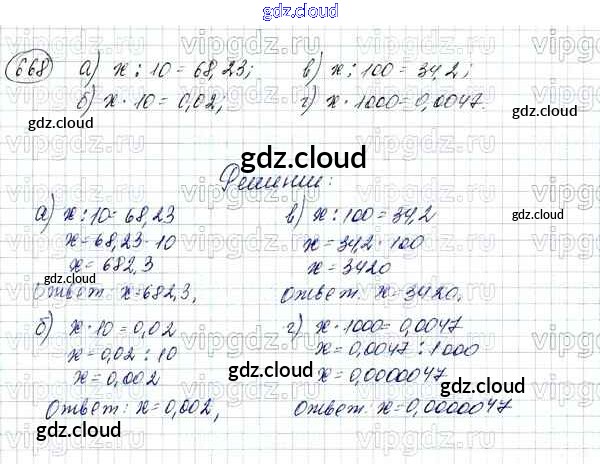 gdz.cloud
668 а) x : 10 = 68,23; в) x : 100 = 34,2;
б) x · 10 = 0,02; г) x · 1000 = 0,0047.
gdz.cloud
gdz.cloud
Решении:
а) x : 10 = 68,23
x = 68,23 · 10
x = 682,3
Ответ: x = 682,3,
в) x : 100 = 34,2
x = 34,2 · 100
x = 3420
Ответ: x = 3420,
б) x · 10 = 0,02
x = 0,02 : 10
x = 0,002
Ответ: x = 0,002,
г) x · 1000 = 0,0047
x = 0,0047 : 1000
x = 0,0000047
Ответ: x = 0,0000047
gdz.cloud
gdz.cloud
gdz.cloud
gdz.cloud
gdz.cloud
gdz.cloud
gdz.cloud